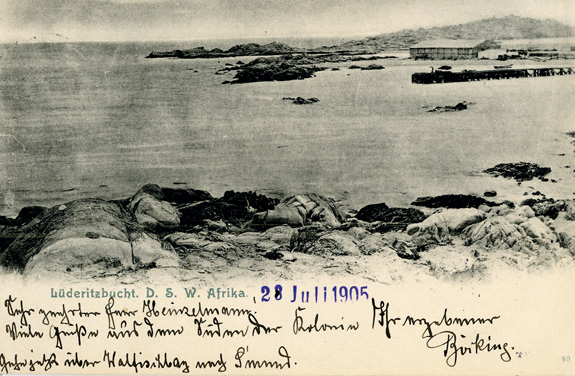 Lüderitzbucht. D. S. W. Afrika. 28 Juli 1905
Sehr geehrter Herr Heinzelmann,
Viele Grüße aus dem Süden der Kolonie Ihr ergebener
Gehe jetzt über Walfischbay nach S'mund.